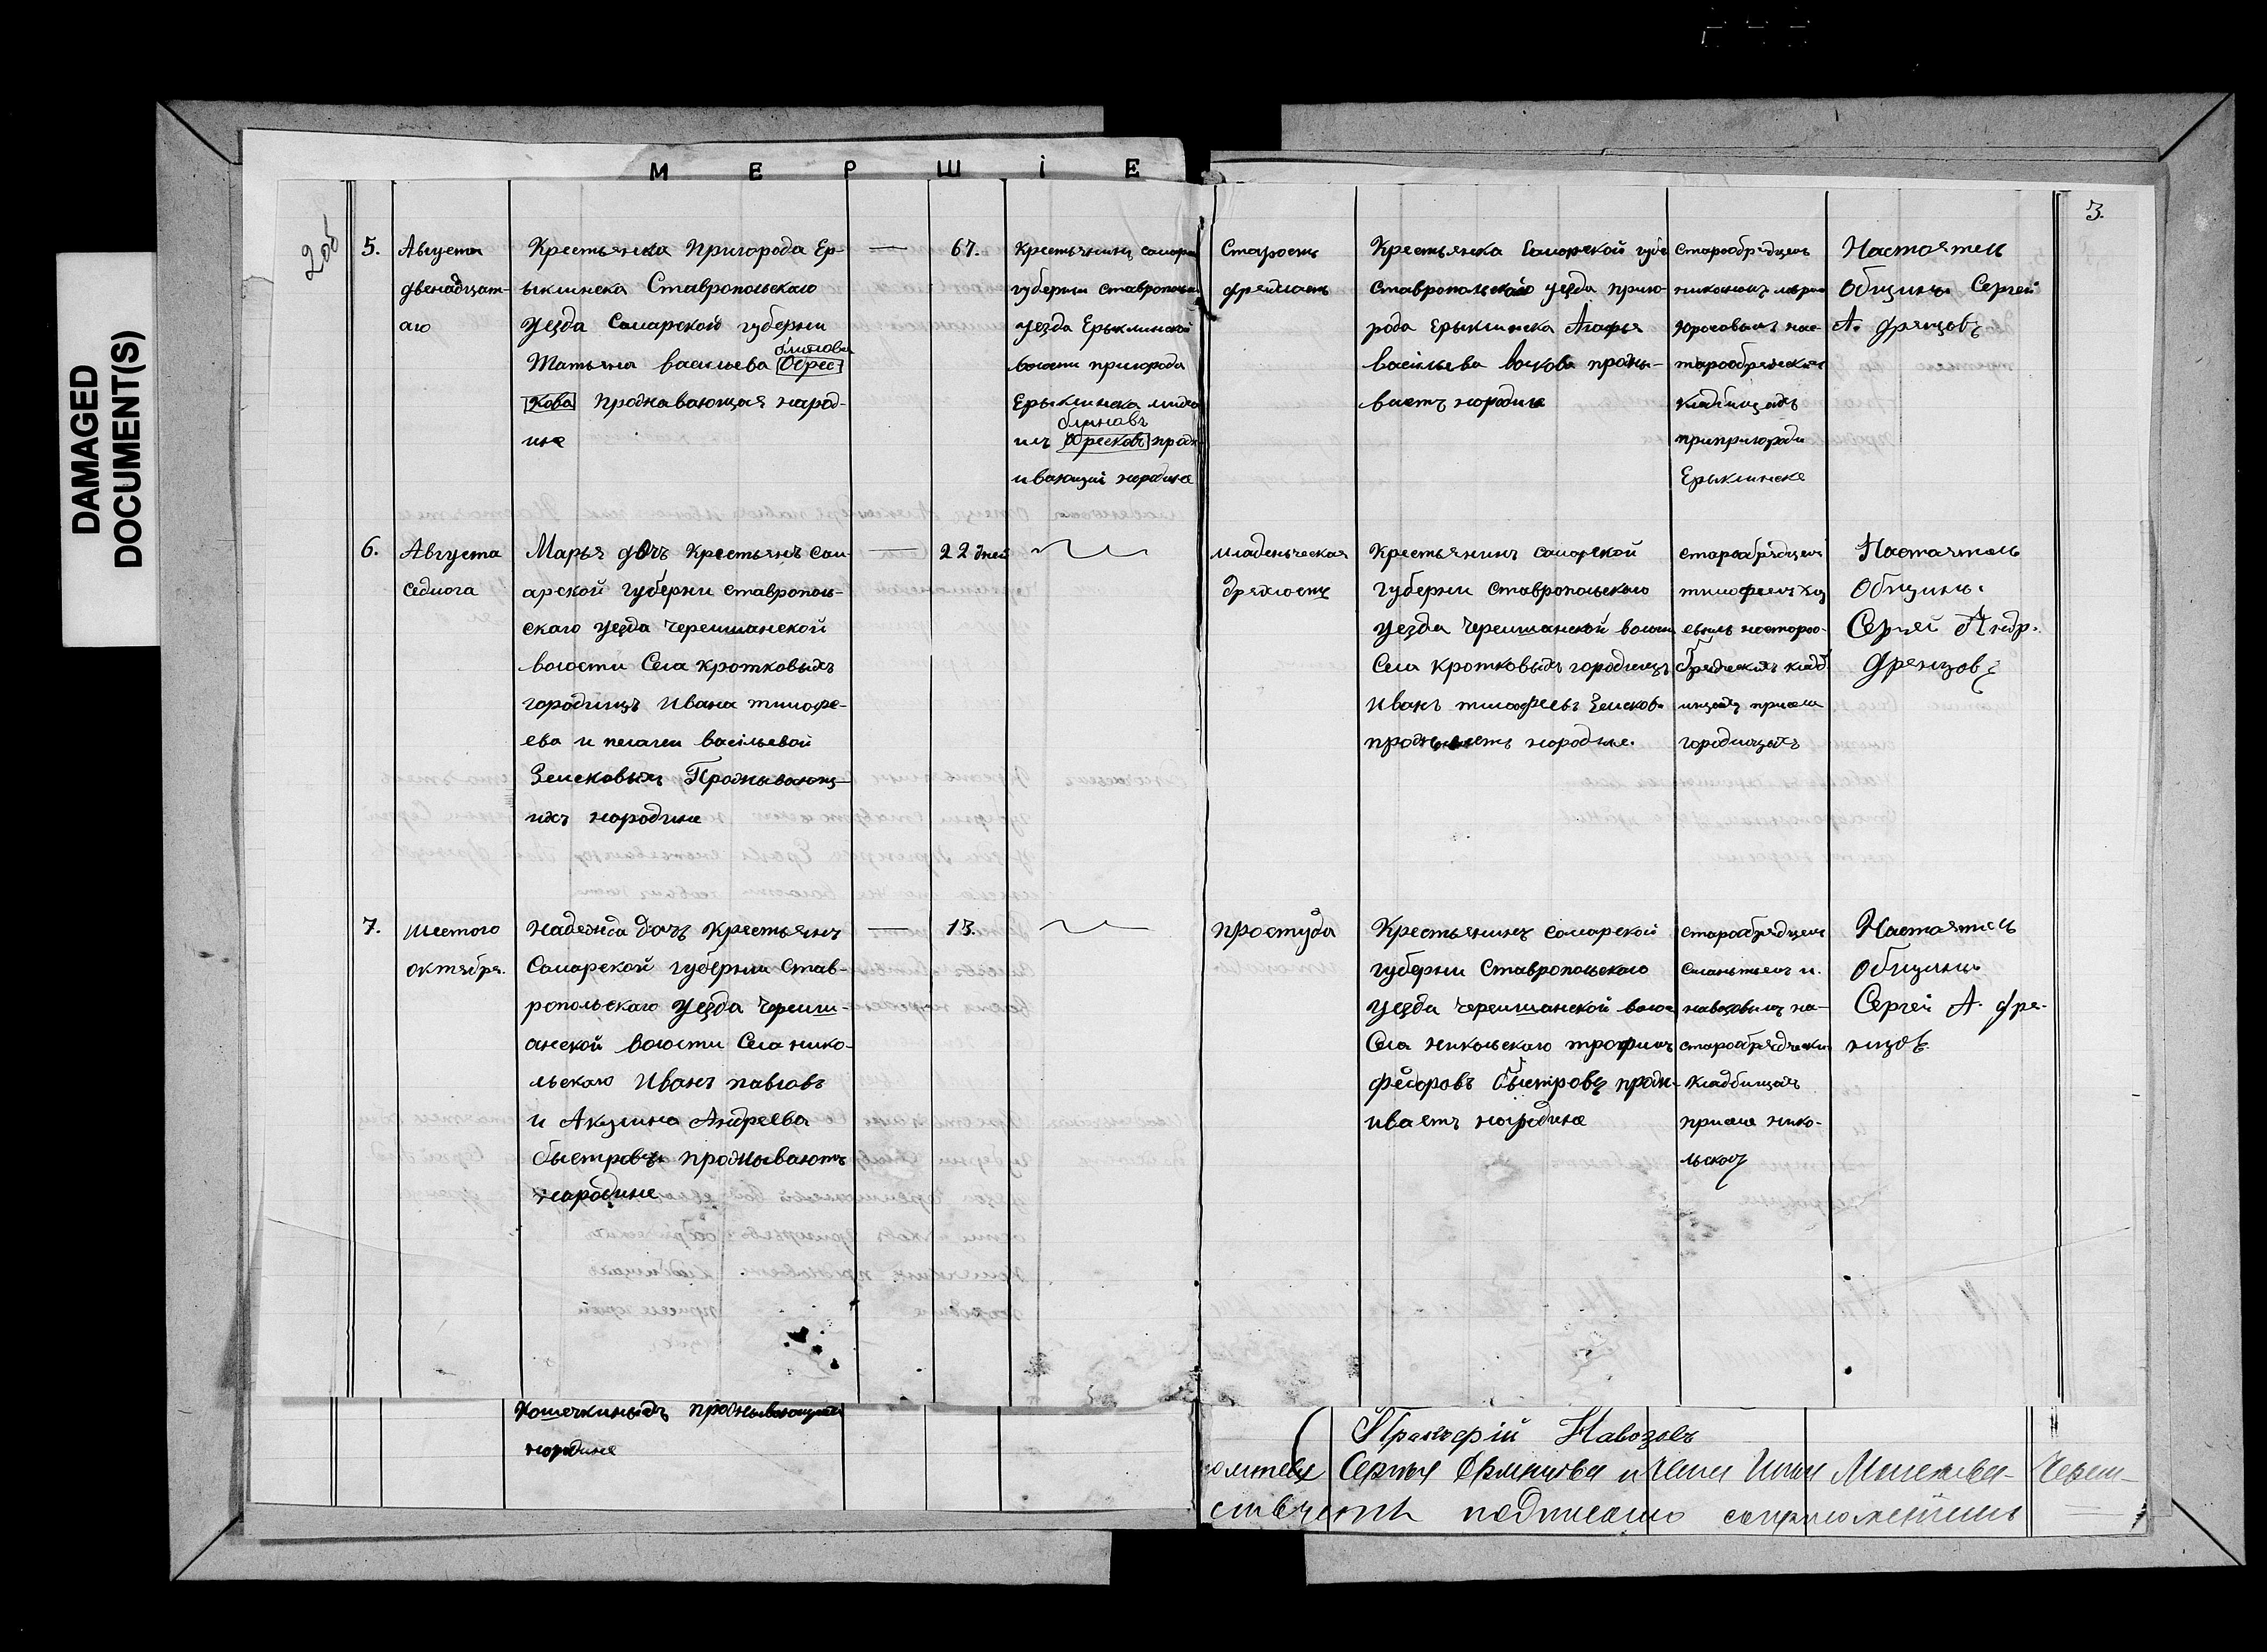 DAMAGED
DOCUMENT(S)
М Е Р Ш І Е
3.
205
5.
Августа
двенадцат-
аго
Крестьянка Пригорода Ер-
ыклинска Ставропольскаго
уезда Самарской губернии
Блинова
Татьяна васильева Обрес-
кова проживающая народ-
ине
—
67.
Крестьянинъ самарс
губернии ставропольск
уезда Ерыклинской
волости пригорода
Ерыклинска
блиновъ
Обресковъ прож-
ивающий народине
Старость
дрехлость
Крестьянка Самарской губе
ставропольскаго уезда приго-
рода Ерыклинска Агафья
васильева прожи-
ваетъ народине
старообрядцемъ
тарообрядческих
кладбищахъ
припригороди
Ерыклинске
Настоятель
Общины Сергей
А. Фрянцовъ
6.
Августа
седмога
Марья дочь Крестьянъ Сам-
арской губернии ставрополь-
скаго уезда Черемшанской
волости Села кротковыхъ
городищъ Ивана тимофе-
ева и пелагеи васільевой
Земсковыхъ Проживающ-
ихъ народине
—
22 дней
младенческая
Дрехлость
Крестьянинъ самарской
губернии ставропольскаго
уезда черемшанской волости
Села кротковыхъ городищъ
Иванъ тимофеевъ Земсковъ
проживаетъ народине.
старообрядцемъ
тимофеемъ
евымъ настароо-
брядческихъ кладб
ищахъ присела
городищахъ
Настоятель
Общины
Сергей Андр.
Френцовъ
7.
шестого
октября.
Надежда дочь Крестьянъ
Самарской губернии Став-
ропольскаго уезда Черемш-
анской волости Села нико-
льскаго Иванъ павловъ
и Акулина Андреева
быстровы проживаютъ
народине
—
13.
простуда
Крестьянинъ самарской
губернии Ставропольскаго
уезда черемшанской воло
Села никольскаго трофимъ
федоровъ быстровъ прож-
иваетъ народине
старообрядцемъ
навозовымъ на-
старообрядчески
кладбищахъ
присела нико-
льскому
Настоятель
Общины
Сергей А. Фре-
нцовъ.
Кошечкиныхъ проживающихъ
народине
Прокофій Навозовъ
Сергея Френцова и члена Ильи Черем-
подписано